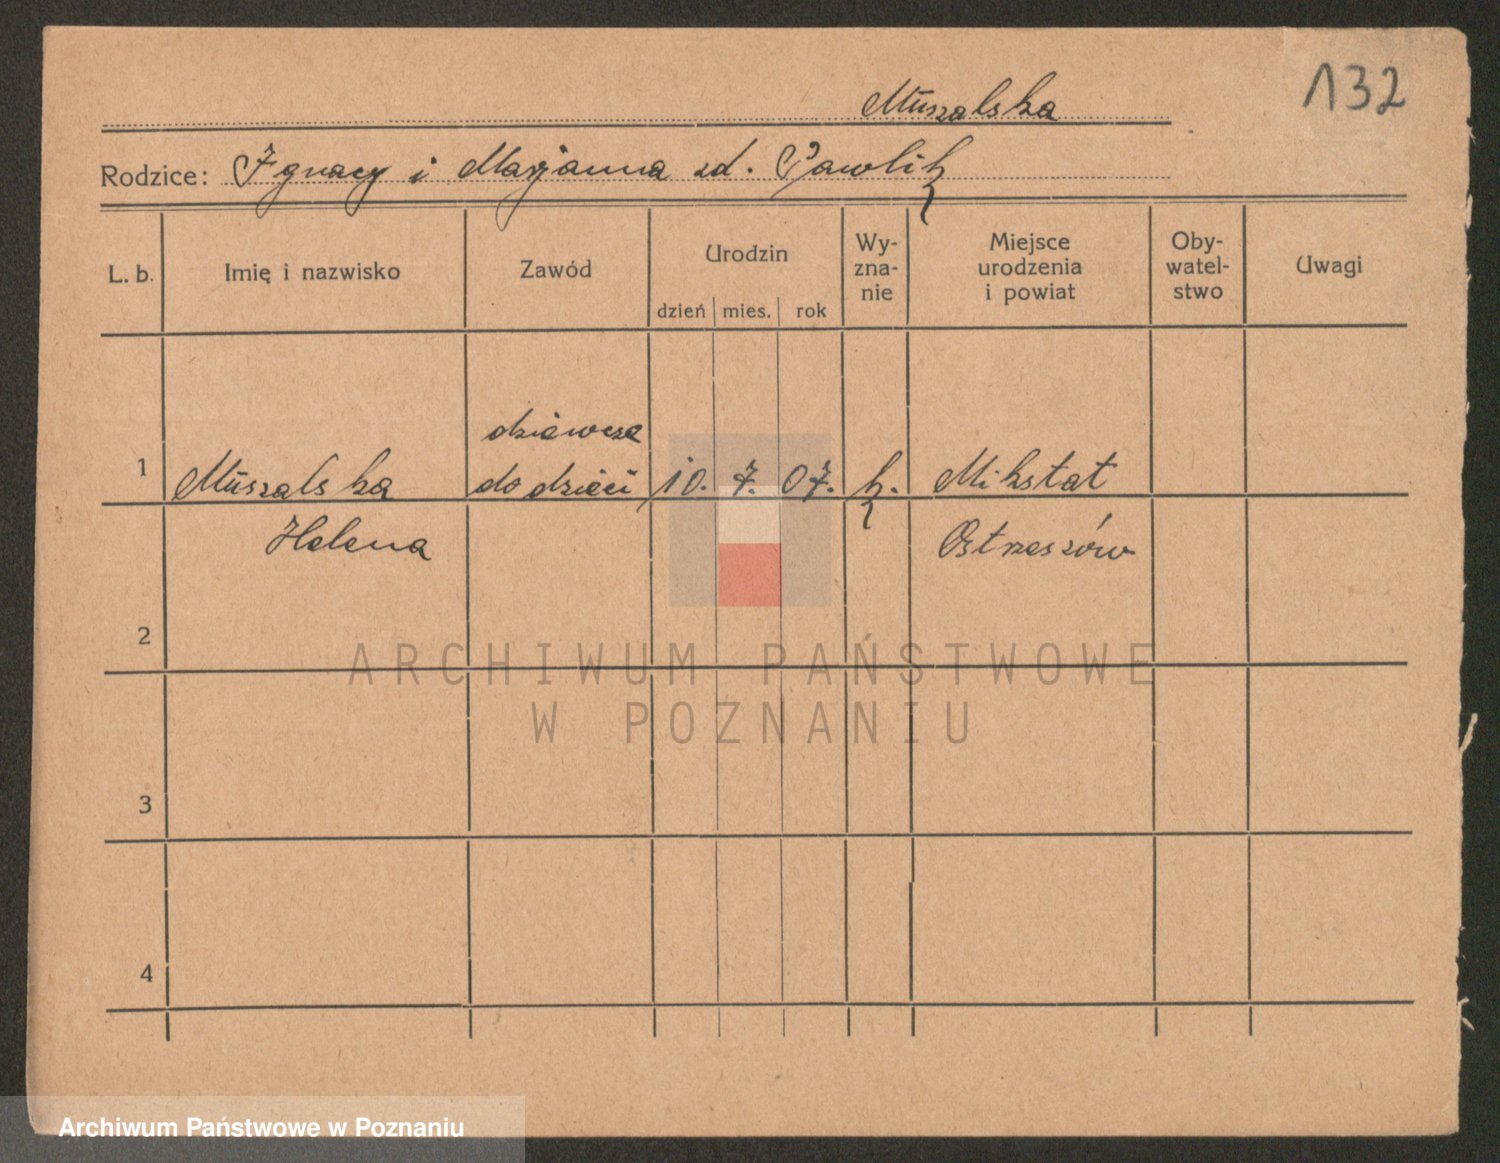 132
Muszalska
Rodzice: Ignacy i Marjanna zd. Pawlik
L. b. Imię i nazwisko Zawód Urodzin dzień mies. rok Wy-zna-nie Miejsce urodzenia i powiat Oby-watel-stwo Uwagi
dziewcze
1 Muszalska do dzieci 10. 7. 07. k. Mikstat
Helena Ostrzeszów
2
ARCHIWUM PAŃSTWOWE
W POZNANIU
3
4
Archiwum Państwowe w Poznaniu